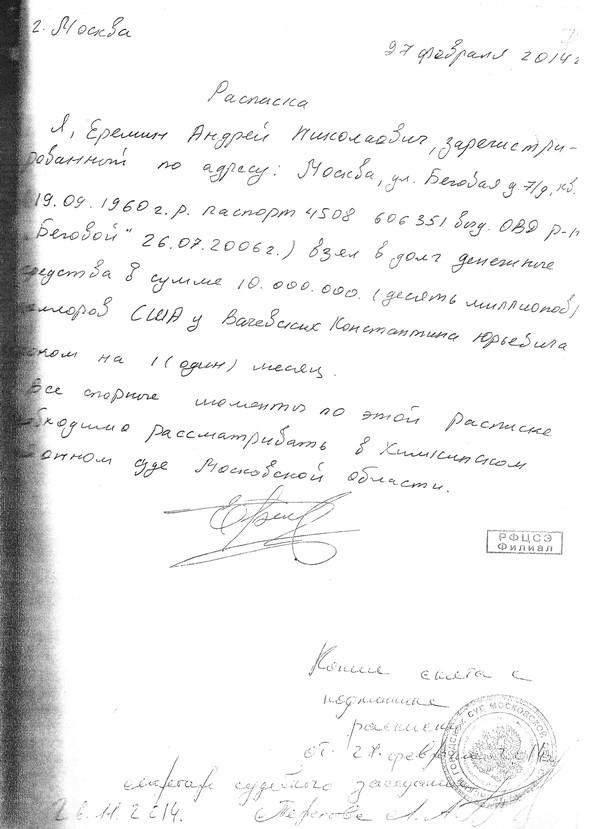 г. Москва
27 февраля 2014г
Расписка
Я, Еремин Андрей Николаович, зарегистри-
рованный по адресу: Москва, ул. Беговая д. 7/9, кв.
19.09.1960 г.р. паспорт 4508 606351 выд. ОВД р-н
Беговой" 26.07.2006г.) взял в долг денежные
средства в сумме 10.000.000. (десять миллионов)
долларов США у Вачевских Константина Юрьевича
сроком на 1 (один) месяц.
Все спорные моменты по этой расписке
необходимо рассматривать в Химкинском
районном суде Московской области.
РФЦСЭ
Филиал
Копия снята с
подлинника
расписки
от 27 февраля 2014г
секретарь судебного заседания
26.11.2014. Терехова Л.А.
ГОРОДСКИХ СУД МОСКОВСКОЙ